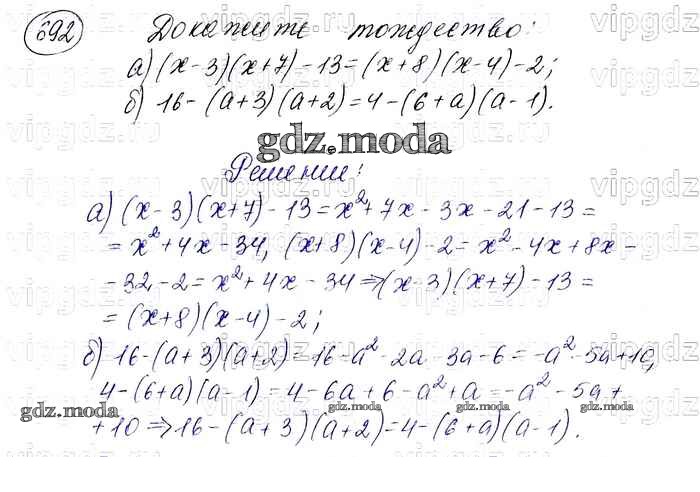 692 Докажите тождество:
а) (x-3)(x+7)-13=(x+8)(x-4)-2;
б) 16-(a+3)(a+2)=4-(6+a)(a-1).
gdz.moda
Решение:
а) (x-3)(x+7)-13=x²+7x-3x-21-13=
=x²+4x-34, (x+8)(x-4)-2=x²-4x+8x-
-32-2=x²+4x-34⇒(x-3)(x+7)-13=
=(x+8)(x-4)-2;
б) 16-(a+3)(a+2)=16-a²-2a-3a-6=-a²-5a+10,
4-(6+a)(a-1)=4-6a+6-a²+a=-a²-5a+
gdz.moda gdz.moda gdz.moda gdz.moda
+10⇒16-(a+3)(a+2)=4-(6+a)(a-1).